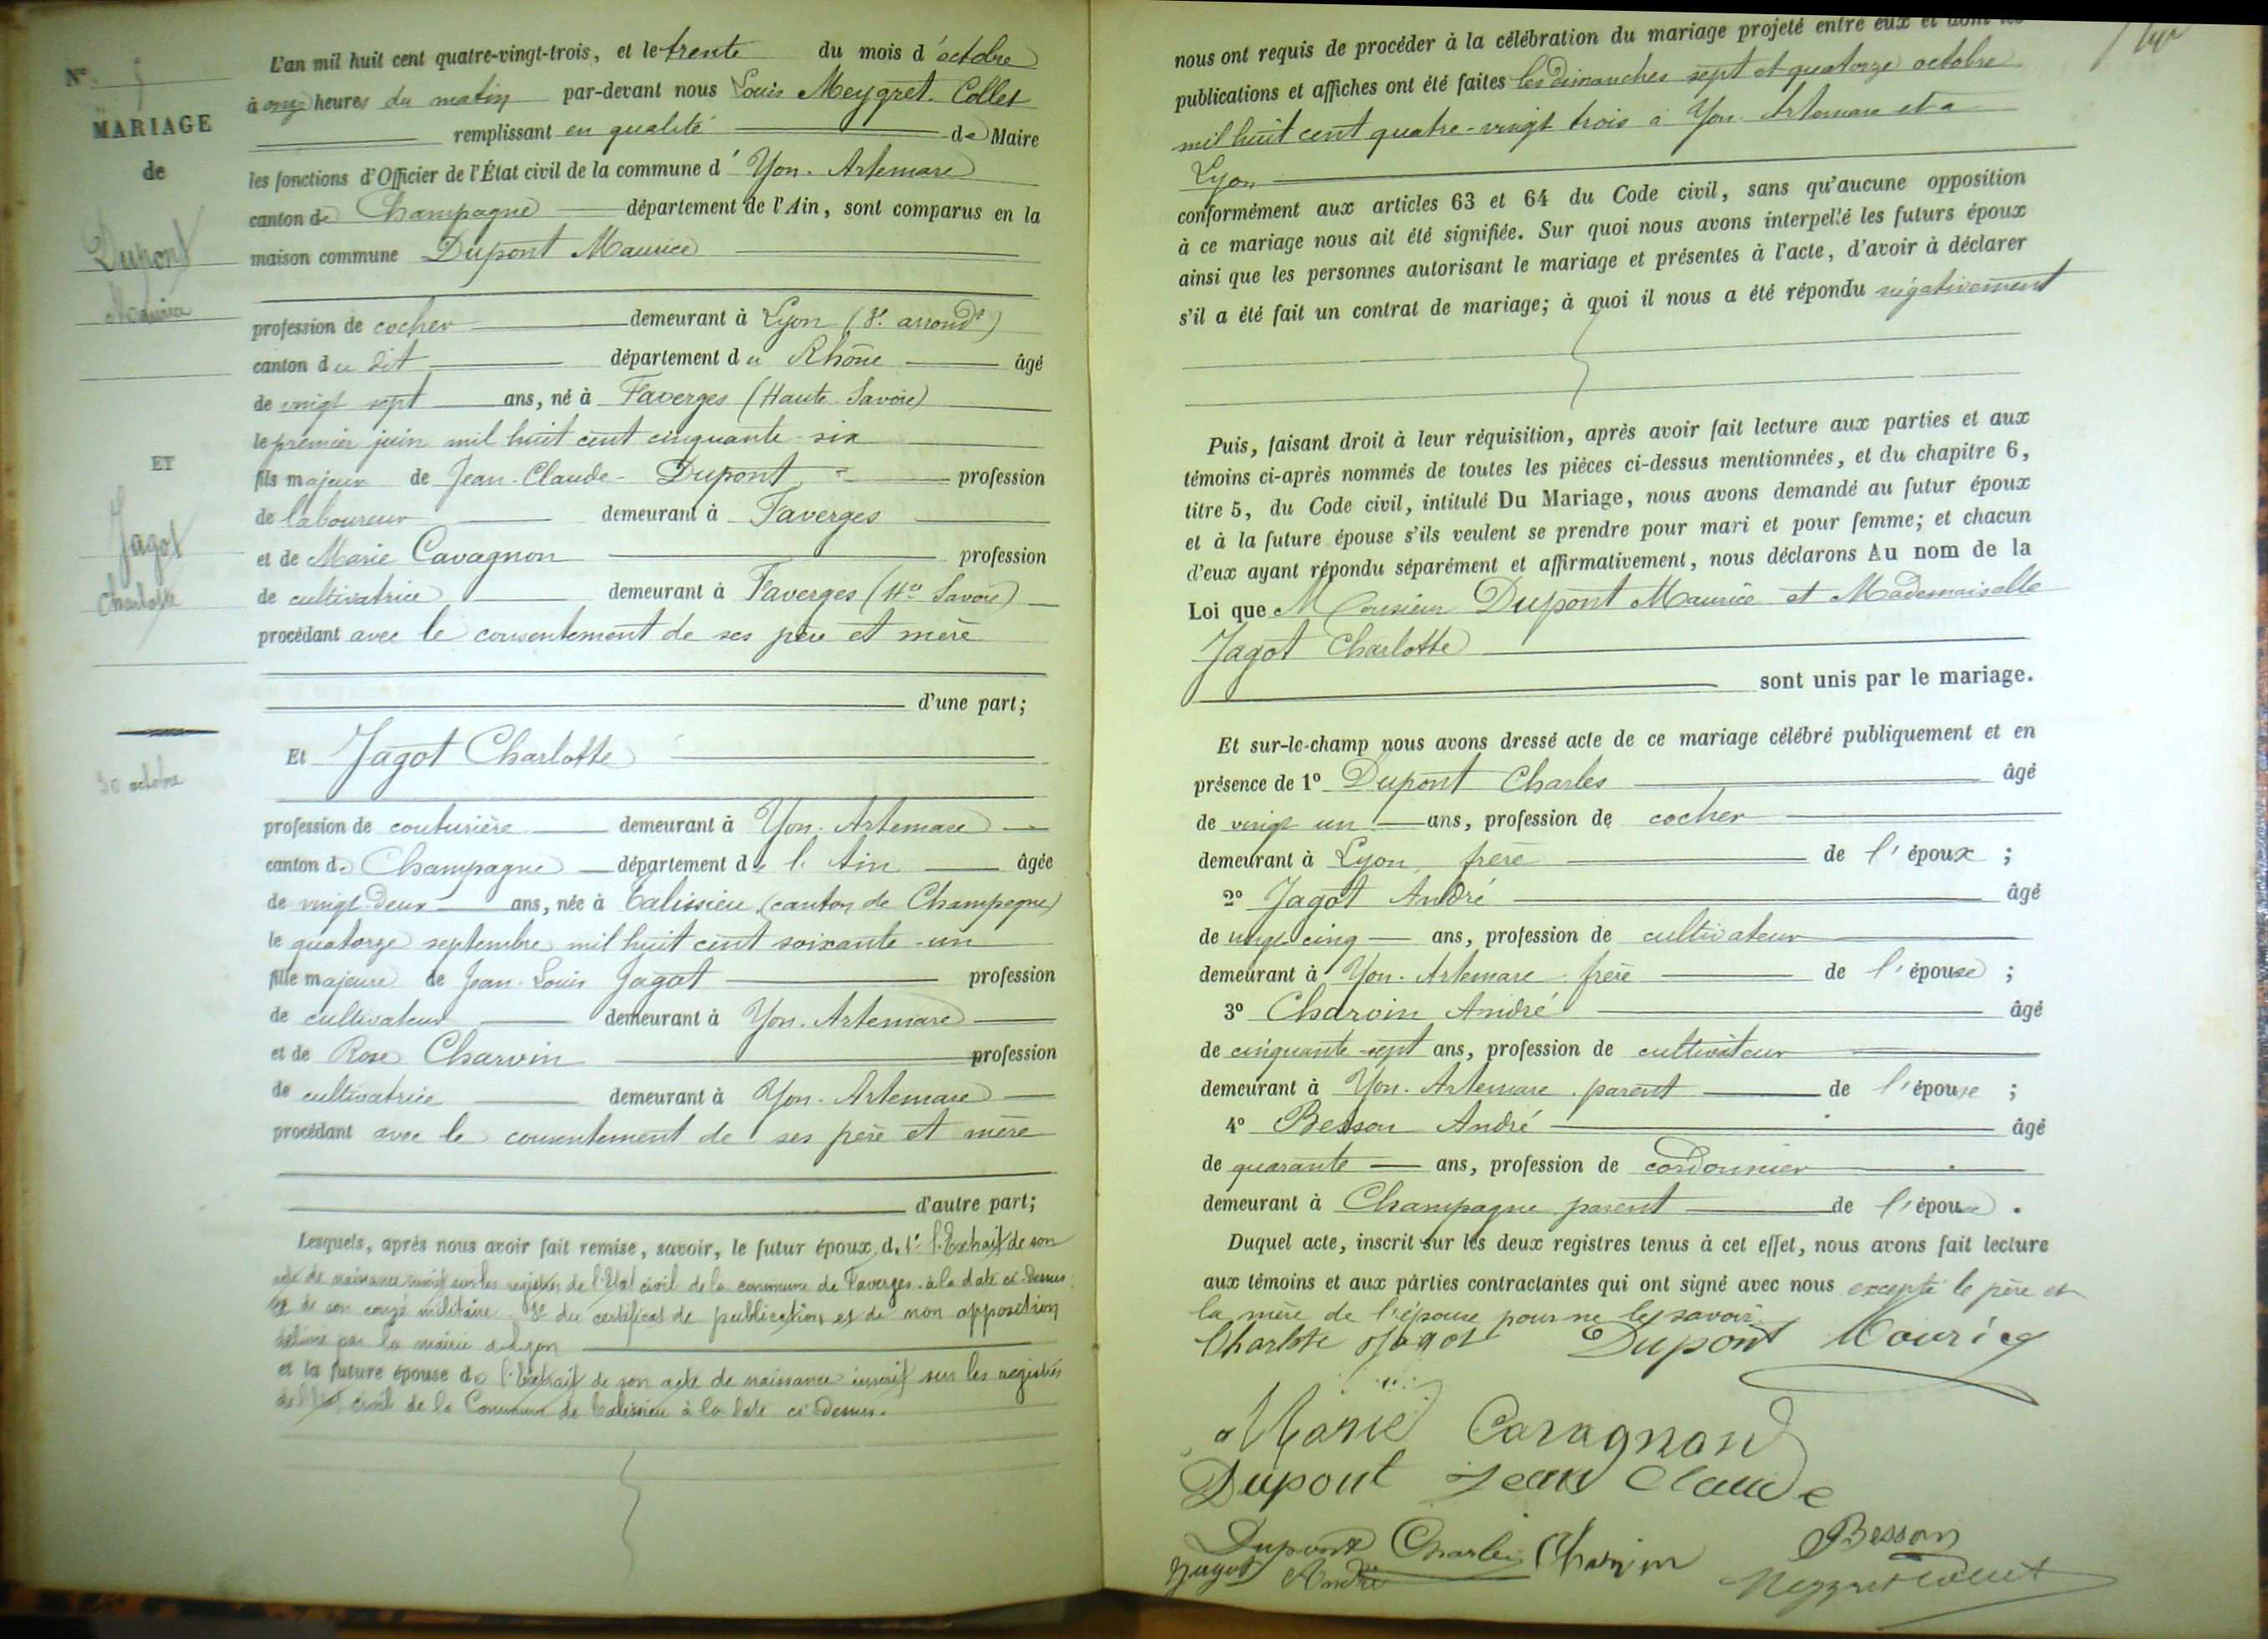 N°
MARIAGE
de
Dupont
Maurice
ET
Jagot
Charlotte
30 octobre
L'an mil huit cent quatre-vingt-trois, et le trente du mois d'octobre
à onze heures du matin par-devant nous Louis Meygret-Collet
remplissant en qualité de Maire
les fonctions d'Officier de l'État civil de la commune d'Yon-Artemare
canton de Champagne département de l'Ain, sont comparus en la
maison commune Dupont Maurice
profession de cocher demeurant à Lyon
canton du dit département du Rhône âgé
de vingt sept ans, né à Faverges (Haute Savoie)
le premier juin mil huit cent cinquante-six
fils majeur de Jean-Claude-Dupont profession
de laboureur demeurant à Faverges
et de Marie Cavagnon profession
de cultivatrice demeurant à Faverges (Hte Savoie)
procédant avec le consentement de ses père et mère
d'une part;
Et Jagot Charlotte
profession de couturière demeurant à Yon-Artemare
canton de Champagne département de l'Ain âgée
de vingt-deux ans, née à Talissieu (canton de Champagne)
le quatorze septembre mil huit cent soixante-un
fille majeure de Jean-Louis Jagot profession
de cultivateur demeurant à Yon-Artemare
et de Rose Charvin profession
de cultivatrice demeurant à Yon-Artemare
procédant avec le consentement de ses père et mère
d'autre part;
Lesquels, après nous avoir fait remise, savoir, le futur époux, de 1° l'Extrait de son
acte de naissance inscrit sur les registres de l'Etat civil de la commune de Faverges à la date ci-dessus
2° de son congé militaire 3° du certificat de publication et de non opposition
délivré par la mairie de Lyon
et la future épouse de l'Extrait de son acte de naissance inscrit sur les registres
de l'Etat civil de la Commune de Talissieu à la date ci-dessus.
nous ont requis de procéder à la célébration du mariage projeté entre eux et dont les
publications et affiches ont été faites les dimanches sept et quatorze octobre
mil huit cent quatre-vingt trois à Yon-Artemare et à
Lyon
conformément aux articles 63 et 64 du Code civil, sans qu'aucune opposition
à ce mariage nous ait été signifiée. Sur quoi nous avons interpellé les futurs époux
ainsi que les personnes autorisant le mariage et présentes à l'acte, d'avoir à déclarer
s'il a été fait un contrat de mariage; à quoi il nous a été répondu négativement
Puis, faisant droit à leur réquisition, après avoir fait lecture aux parties et aux
témoins ci-après nommés de toutes les pièces ci-dessus mentionnées, et du chapitre 6,
titre 5, du Code civil, intitulé Du Mariage, nous avons demandé au futur époux
et à la future épouse s'ils veulent se prendre pour mari et pour femme; et chacun
d'eux ayant répondu séparément et affirmativement, nous déclarons Au nom de la
Loi que Monsieur Dupont Maurice et Mademoiselle
Jagot Charlotte
sont unis par le mariage.
Et sur-le-champ nous avons dressé acte de ce mariage célébré publiquement et en
présence de 1° Dupont Charles âgé
de vingt un ans, profession de cocher
demeurant à Lyon, frère de l'époux ;
2° Jagot André âgé
de vingt-cinq ans, profession de cultivateur
demeurant à Yon-Artemare frère de l'épouse ;
3° Charvin André âgé
de cinquante-sept ans, profession de cultivateur
demeurant à Yon-Artemare parent de l'épouse ;
4° Besson André âgé
de quarante ans, profession de cordonnier
demeurant à Champagne parent de l'épouse .
Duquel acte, inscrit sur les deux registres tenus à cet effet, nous avons fait lecture
aux témoins et aux parties contractantes qui ont signé avec nous excepté le père et
la mère de l'épouse pour ne le savoir.
Charlote Jagot Dupont Mouric
Marie Cavagnon
Dupont Jean Claude
Dupont Charles Charvin Besson
Jagot André Meygret Collet